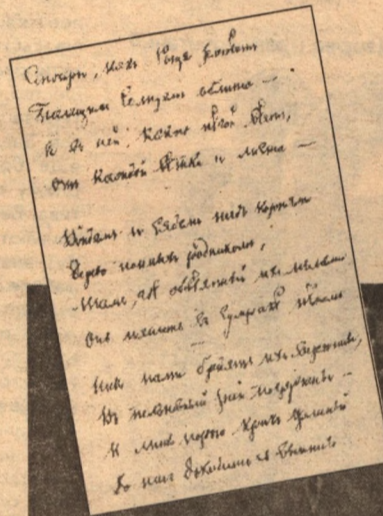 Смотри, какъ роща зеленѣетъ
Палящимъ солнцемъ облита —
А въ ней, какою нѣгой вѣетъ,
Отъ каждой вѣтки и листа —
Войдемъ и сядемъ надъ корнями
Деревъ поимыхъ родникомъ,
Тамъ, гдѣ обвѣянный ихъ мглами
Онъ шепчетъ въ сумракѣ нѣмомъ
Надъ нами бредятъ ихъ вершины,
Въ полдневный зной погружены —
И лишь порою крикъ орлиный
До насъ доходитъ съ вышины